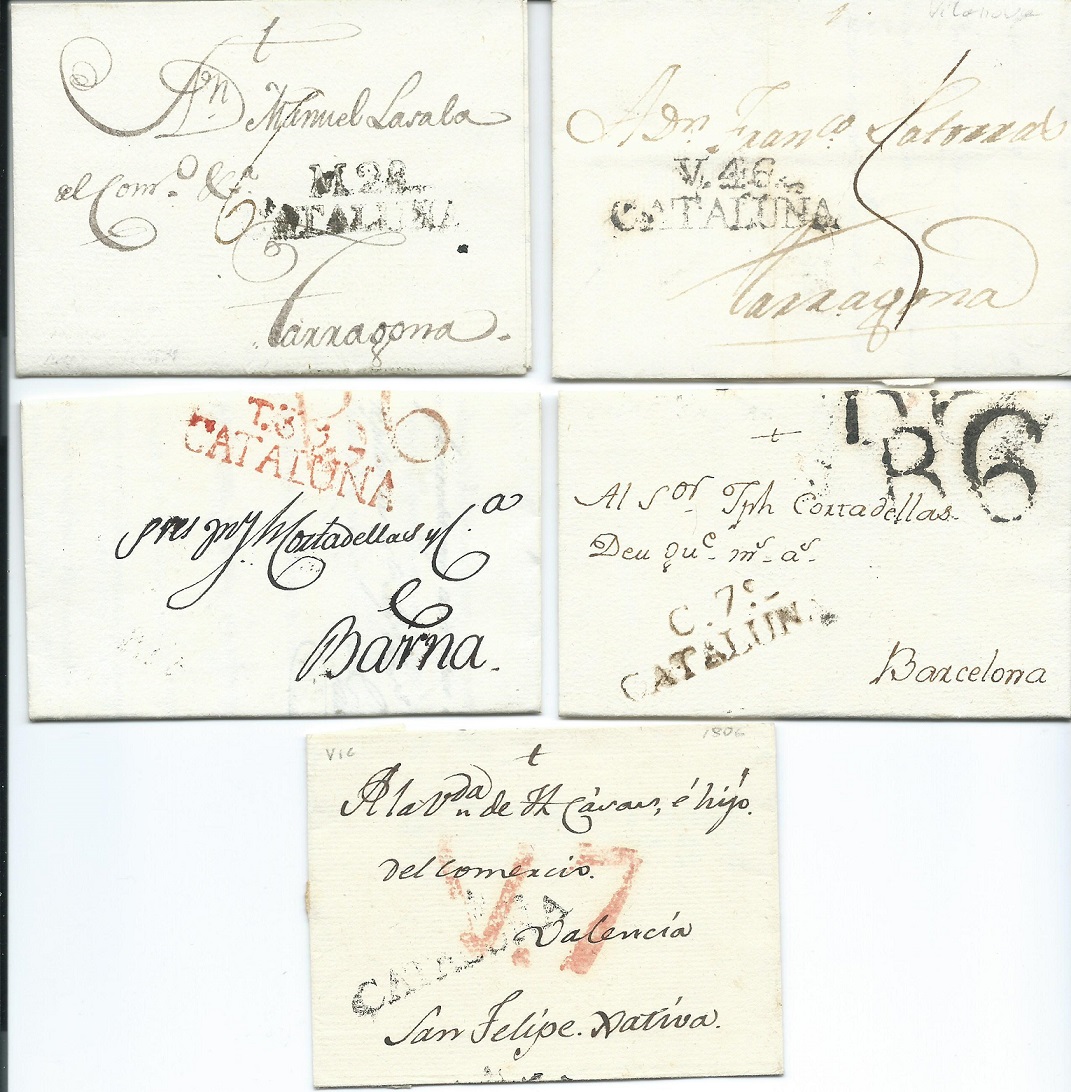 t
An Manuel Lasala
del Comro &a
M. 28
CATALUÑA
6
Tarragona.
Vilanova
A Dn Franco Latorre
V. 46
CATALUÑA
Tarragona
T. 8
CATALUÑA
6
Cortadellas y Ca
Barna.
t
R
6
Al Sor Jph Cortadellas.
Deu gue ms as
C. 7
CATALUÑA
Barcelona
Vic
1806
t
A la Vda de é hijo.
del comercio.
V. 7
CATALUÑA
Valencia
San Felipe. Xativa.